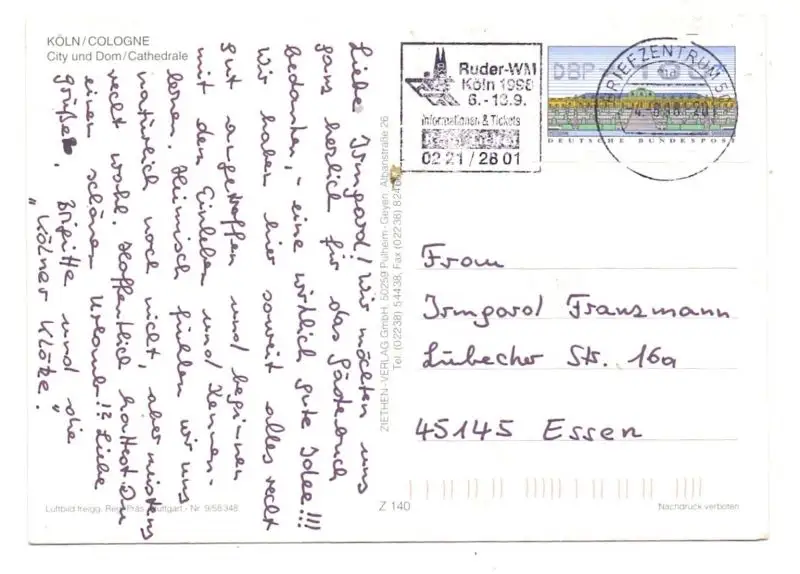 KÖLN/COLOGNE
City und Dom/Cathedrale
Liebe Irmgard! Wir möchten uns
ganz herzlich für das Gästebuch
bedanken, - eine wirklich gute Idee!!!
Wir haben hier soweit alles recht
gut angetroffen und beginnen
mit dem Einleben und Kennen-
lernen. Heimisch fühlen wir uns
natürlich noch nicht, aber meistens
recht wohl. Hoffentlich hattest Du
einen schönen Urlaub!? Liebe
Grüße, Brigitte und die
"Kölner Klötze."
Luftbild freigg. Reg. Präs. Stuttgart - Nr. 9/58348
ZIETHEN-VERLAG GmbH, 50259 Pulheim-Geyen, Albanstraße 26
Tel. (02238) 54438, Fax (02238)
Z 140
Ruder-WM
Köln 1998
6.-13.9.
Informationen & Tickets
02 21 / 28 01
DBP
BRIEFZENTRUM
DEUTSCHE BUNDESPOST
Frau
Irmgard Franzmann
Lübecker Str. 16a
45145 Essen
Nachdruck verboten